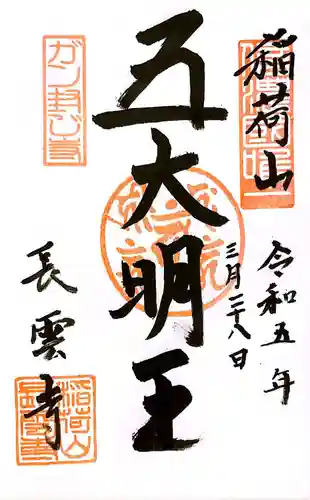 稲荷山
令和五年
三月二十八日
五大明王
長雲寺
ガン封じ寺